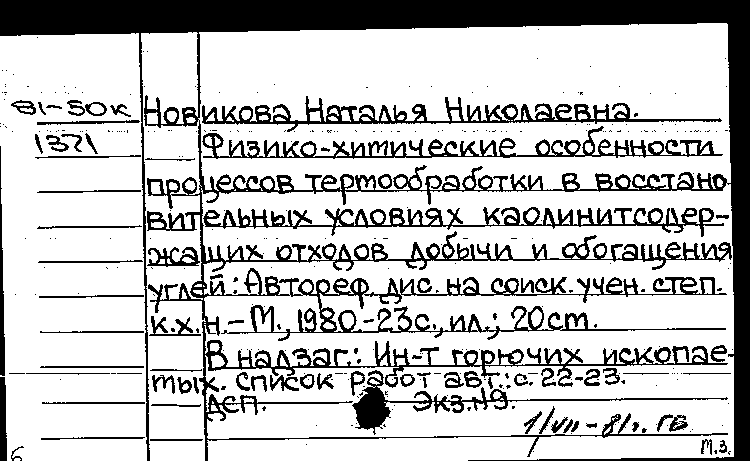 81-50к Новикова, Наталья Николаевна.
1371 Физико-химические особенности
процессов термообработки в восстано-
вительных условиях каолинитсодер-
жащих отходов добычи и обогащения
углей: Автореф. дис. на соиск. учен. степ.
к.х.н. - М., 1980. - 23с., ил.; 20см.
В надзаг.: Ин-т горючих ископае-
мых. Список работ авт.: с. 22-23.
Деп. Экз. №9.
1/VII - 81г. ГБ
М.З.
Б